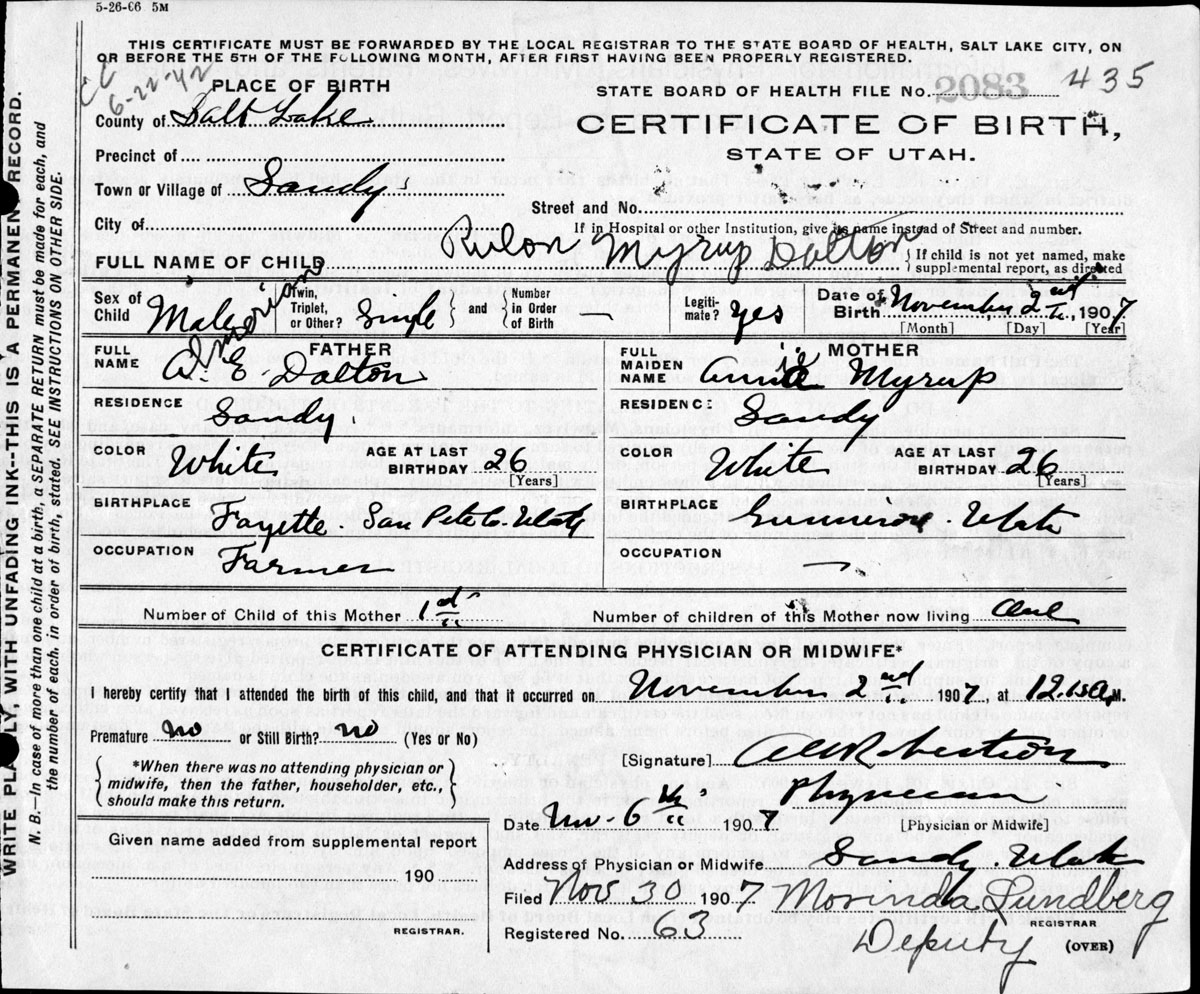 5-26-06 5M
THIS CERTIFICATE MUST BE FORWARDED BY THE LOCAL REGISTRAR TO THE STATE BOARD OF HEALTH, SALT LAKE CITY, ON
OR BEFORE THE 5TH OF THE FOLLOWING MONTH, AFTER FIRST HAVING BEEN PROPERLY REGISTERED.
CC
6-22-42
PLACE OF BIRTH
STATE BOARD OF HEALTH FILE No. 2083 435
County of Salt Lake
CERTIFICATE OF BIRTH,
STATE OF UTAH.
Precinct of
Town or Village of Sandy
Street and No.
City of
If in Hospital or other Institution, give its name instead of Street and number.
FULL NAME OF CHILD Rulon Myrup Dalton
If child is not yet named, make
supplemental report, as directed
Sex of Child Male
Twin, Triplet, or Other? Single and Number in Order of Birth —
Legitimate? Yes
Date of Birth November 2nd, 1907
[Month] [Day] [Year]
FATHER
FULL NAME A. E. Dalton
MOTHER
FULL MAIDEN NAME Annie Myrup
RESIDENCE Sandy
RESIDENCE Sandy
COLOR White AGE AT LAST BIRTHDAY 26 [Years]
COLOR White AGE AT LAST BIRTHDAY 26 [Years]
BIRTHPLACE Fayette. San Pete Co. Utah
BIRTHPLACE Gunnison. Utah
OCCUPATION Farmer
OCCUPATION —
Number of Child of this Mother 1st
Number of children of this Mother now living One
CERTIFICATE OF ATTENDING PHYSICIAN OR MIDWIFE*
I hereby certify that I attended the birth of this child, and that it occurred on November 2nd, 1907, at 12.15 A.M.
Premature no or Still Birth? no (Yes or No)
*When there was no attending physician or
midwife, then the father, householder, etc.,
should make this return.
[Signature] A W Robertson
Physician
[Physician or Midwife]
Date Nov. 6th 1907
Address of Physician or Midwife Sandy. Utah
Given name added from supplemental report
190
REGISTRAR.
Filed Nov 30 1907 Morinda Lundberg
REGISTRAR
Registered No. 63 Deputy (OVER)
WRITE PLAINLY, WITH UNFADING INK--THIS IS A PERMANENT RECORD.
N. B.—In case of more than one child at a birth, a SEPARATE RETURN must be made for each, and
the number of each. in order of birth, stated. SEE INSTRUCTIONS ON OTHER SIDE.